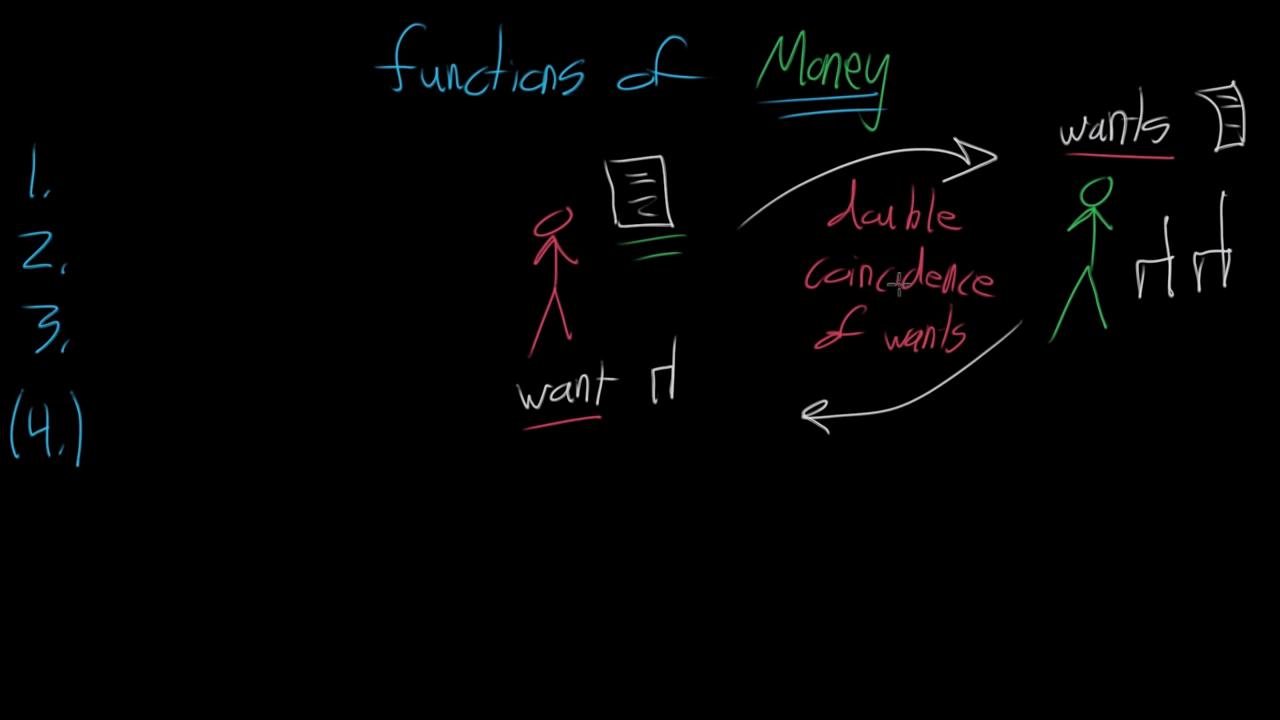 functions of Money
1.
2.
3.
(4.)
want
double
coincidence
of wants
wants